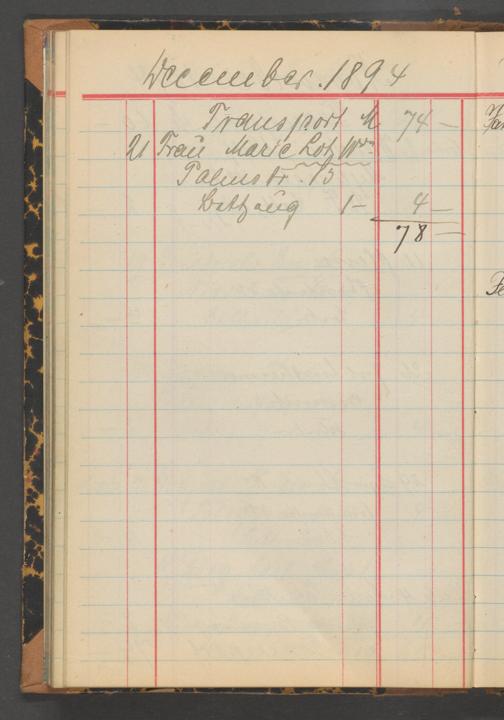 December. 1894
Transport M 74 —
21 Frau Marie Lotz Wwe.
Palmstr. 13
Bettzeug 1— 4 —
78 —